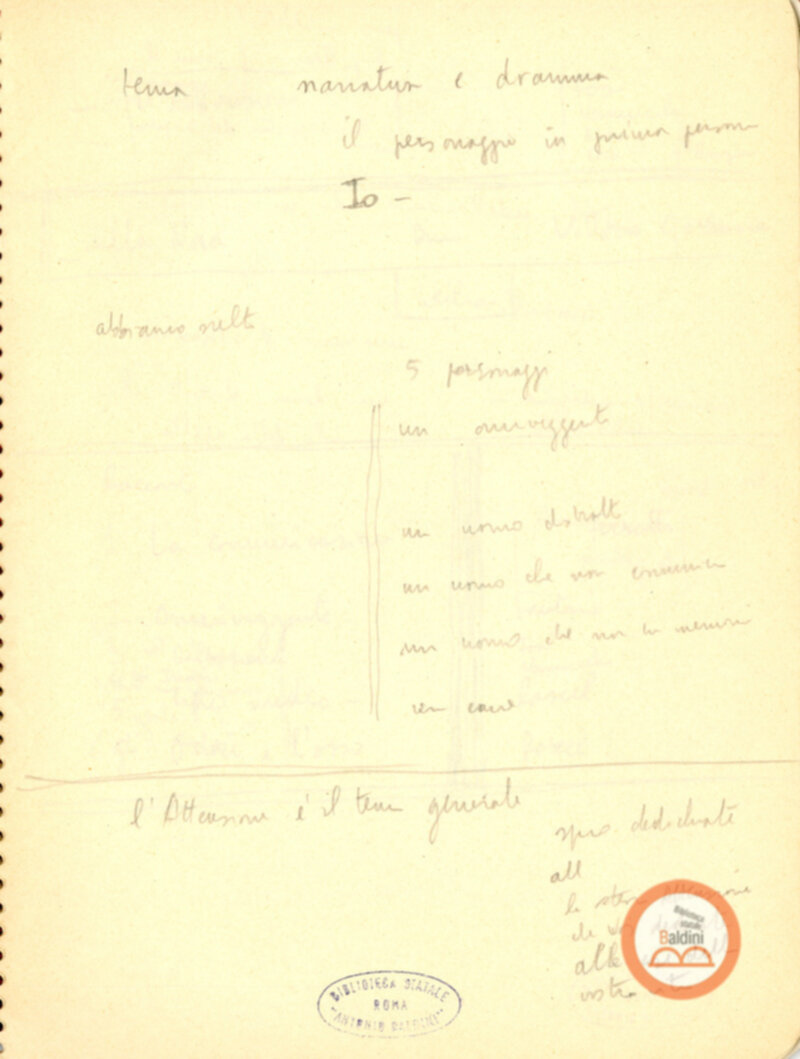 tema narrativa e dramma
il personaggio in prima persona
Io –
abbiamo scelto
5 personaggi
un onniveggente
un uomo distratto
un uomo che non comunica
un uomo che non ha memoria
un cane
l'Attenzione è il tema generale
dedichiate
all
la stessa attenzione
che
alle
vostra
BIBLIOTECA STATALE
ROMA
"ANTONIO BALDINI"
Biblioteca
statale
Baldini